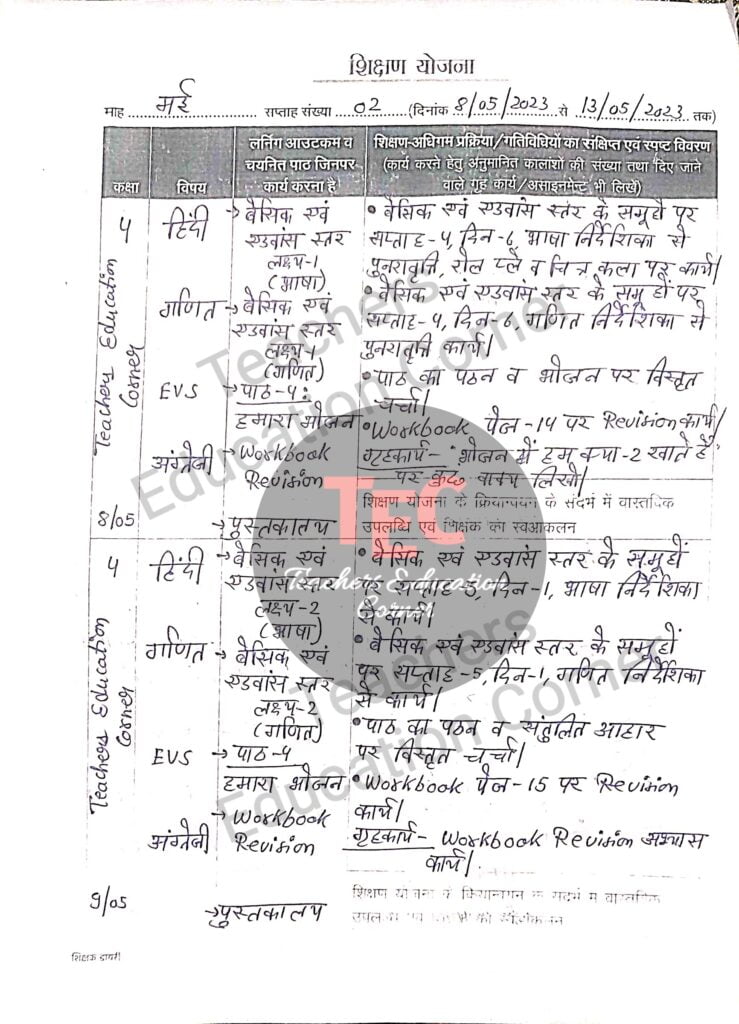 शिक्षण योजना
माह मई सप्ताह संख्या 02 (दिनांक 8/05/2023 से 13/05/2023 तक)
कक्षा
विषय
लर्निंग आउटकम व
चयनित पाठ जिनपर
कार्य करना है
शिक्षण-अधिगम प्रक्रिया/गतिविधियों का संक्षिप्त एवं स्पष्ट विवरण
(कार्य करने हेतु अनुमानित कालांशों की संख्या तथा दिए जाने
वाले गृह कार्य/असाइनमेंट भी लिखें)
4
हिंदी
→ बैसिक एवं
एडवांस स्तर
लक्ष्य-1
(भाषा)
• बैसिक एवं एडवांस स्तर के समूहों पर
सप्ताह-4, दिन-6, भाषा निर्देशिका से
पुनरावृत्ति, रोल प्ले व चित्र कला पर कार्य।
गणित
→ बैसिक एवं
एडवांस स्तर
लक्ष्य-1
(गणित)
• बैसिक एवं एडवांस स्तर के समूहों पर
सप्ताह-4, दिन-6, गणित निर्देशिका से
पुनरावृत्ति कार्य।
EVS
→ पाठ-4:
हमारा भोजन
• पाठ का पठन व भोजन पर विस्तृत
चर्चा।
अंग्रेजी
→ Workbook
Revision
• Workbook पेज-14 पर Revision कार्य।
गृहकार्य- भोजन में हम क्या-2 खाते हैं
पर कुछ वाक्य लिखो।
8/05
→ पुस्तकालय
शिक्षण योजना के क्रियान्वयन के संदर्भ में वास्तविक
उपलब्धि एवं शिक्षक का स्वआकलन
Teachers Education
Corner
4
हिंदी
→ बैसिक एवं
एडवांस स्तर
लक्ष्य-2
(भाषा)
• बैसिक एवं एडवांस स्तर के समूहों
पर सप्ताह-5, दिन-1, भाषा निर्देशिका
से कार्य।
गणित
→ बैसिक एवं
एडवांस स्तर
लक्ष्य-2
(गणित)
• बैसिक एवं एडवांस स्तर के समूहों
पर सप्ताह-5, दिन-1, गणित निर्देशिका
से कार्य।
EVS
→ पाठ-4
हमारा भोजन
• पाठ का पठन व संतुलित आहार
पर विस्तृत चर्चा।
अंग्रेजी
→ Workbook
Revision
• Workbook पेज-15 पर Revision
कार्य।
गृहकार्य- Workbook Revision अभ्यास
कार्य।
9/05
→ पुस्तकालय
शिक्षण योजना के क्रियान्वयन के संदर्भ में वास्तविक
Teachers Education
Corner
शिक्षक डायरी
TEC
Teachers Education
Corner
Teachers
Education Corner
Teachers
Education Corner